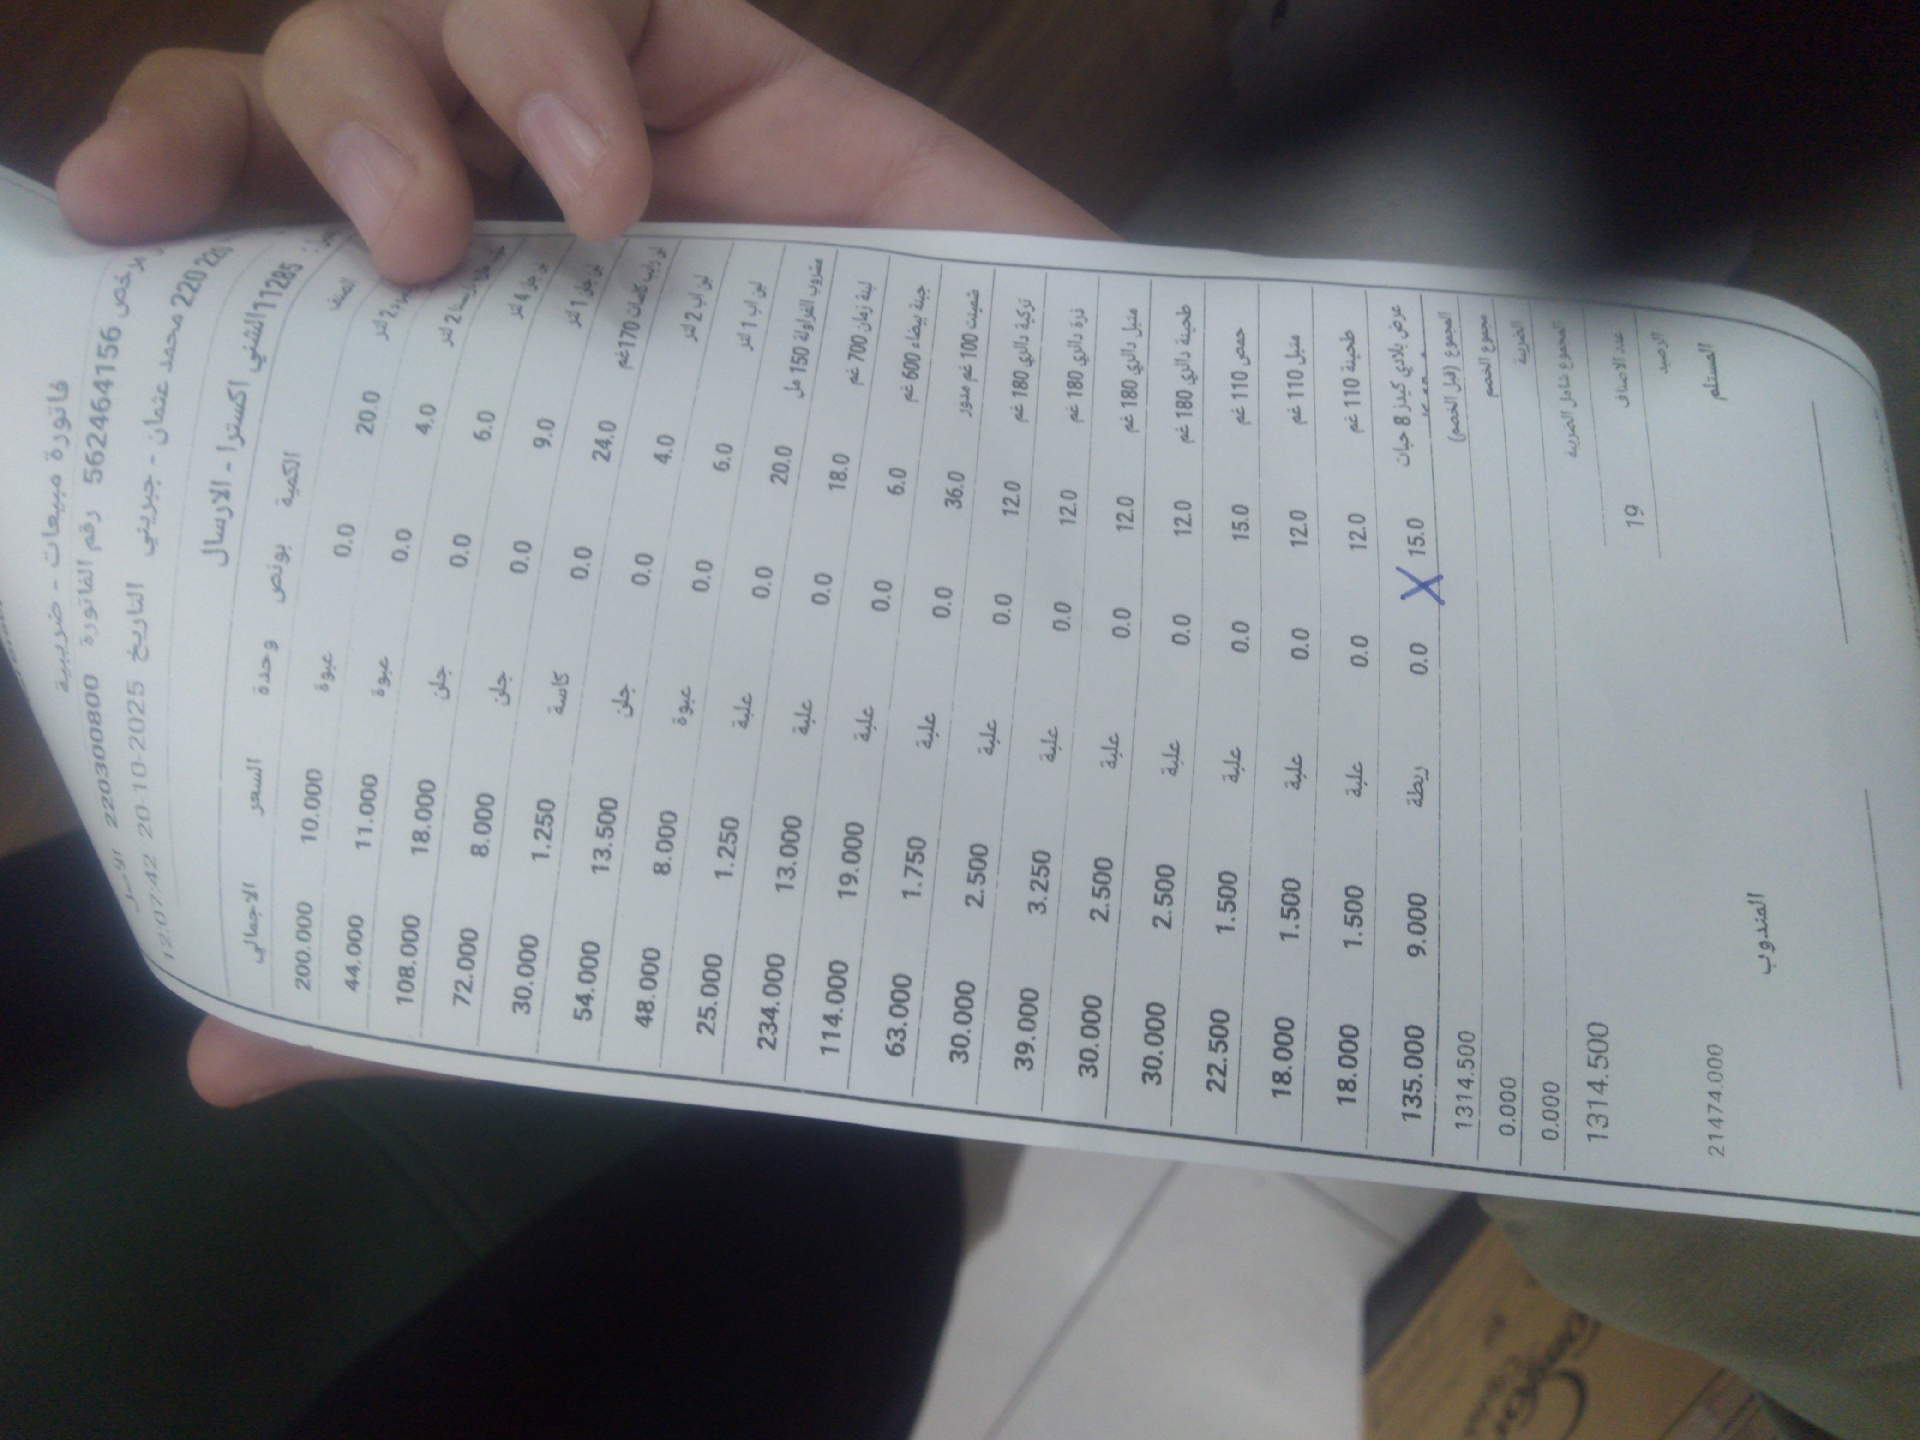 فاتورة مبيعات - ضريبية
مرخص 562464156 رقم الفاتورة 220300800
220 محمد عثمان - جبريني التاريخ 20-10-2025 12:07:42
11285 الشني اكسترا - الارسال
الصنف الكمية بونص وحدة السعر الاجمالي
2 لتر 20.0 0.0 عبوة 10.000 200.000
2 لتر 4.0 0.0 عبوة 11.000 44.000
4 لتر 6.0 0.0 جلن 18.000 108.000
لبن جلن 1 لتر 9.0 0.0 جلن 8.000 72.000
لبن رايب كاسات 170 غم 24.0 0.0 كاسة 1.250 30.000
لبن اب 2 لتر 4.0 0.0 جلن 13.500 54.000
لبن اب 1 لتر 6.0 0.0 عبوة 8.000 48.000
مشروب الفراولة 150 مل 20.0 0.0 علبة 1.250 25.000
لبنة زمان 700 غم 18.0 0.0 علبة 13.000 234.000
جبنة بيضاء 600 غم 6.0 0.0 علبة 19.000 114.000
شمينت 100 غم مدور 36.0 0.0 علبة 1.750 63.000
تركية دالري 180 غم 12.0 0.0 علبة 2.500 30.000
ذرة دالري 180 غم 12.0 0.0 علبة 3.250 39.000
متبل دالري 180 غم 12.0 0.0 علبة 2.500 30.000
طحينة دالري 180 غم 12.0 0.0 علبة 2.500 30.000
حمص 110 غم 15.0 0.0 علبة 1.500 22.500
متبل 110 غم 12.0 0.0 علبة 1.500 18.000
طحينة 110 غم 12.0 0.0 علبة 1.500 18.000
عرض بلادي كيدز 8 حبات 15.0 X 0.0 ربطة 9.000 135.000
المجموع (قبل الخصم) 1314.500
مجموع الخصم 0.000
الضريبة 0.000
المجموع شامل الضريبة 1314.500
عدد الاصناف 19
الرصيد 21474.000
المستلم المندوب